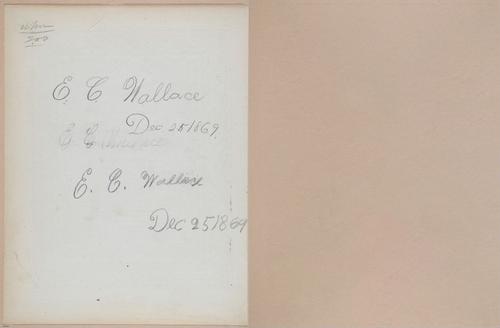 3.00
E. C Wallace
Dec 25 1869.
E. C. Wallace
E. C. Wallace
Dec 25 1869